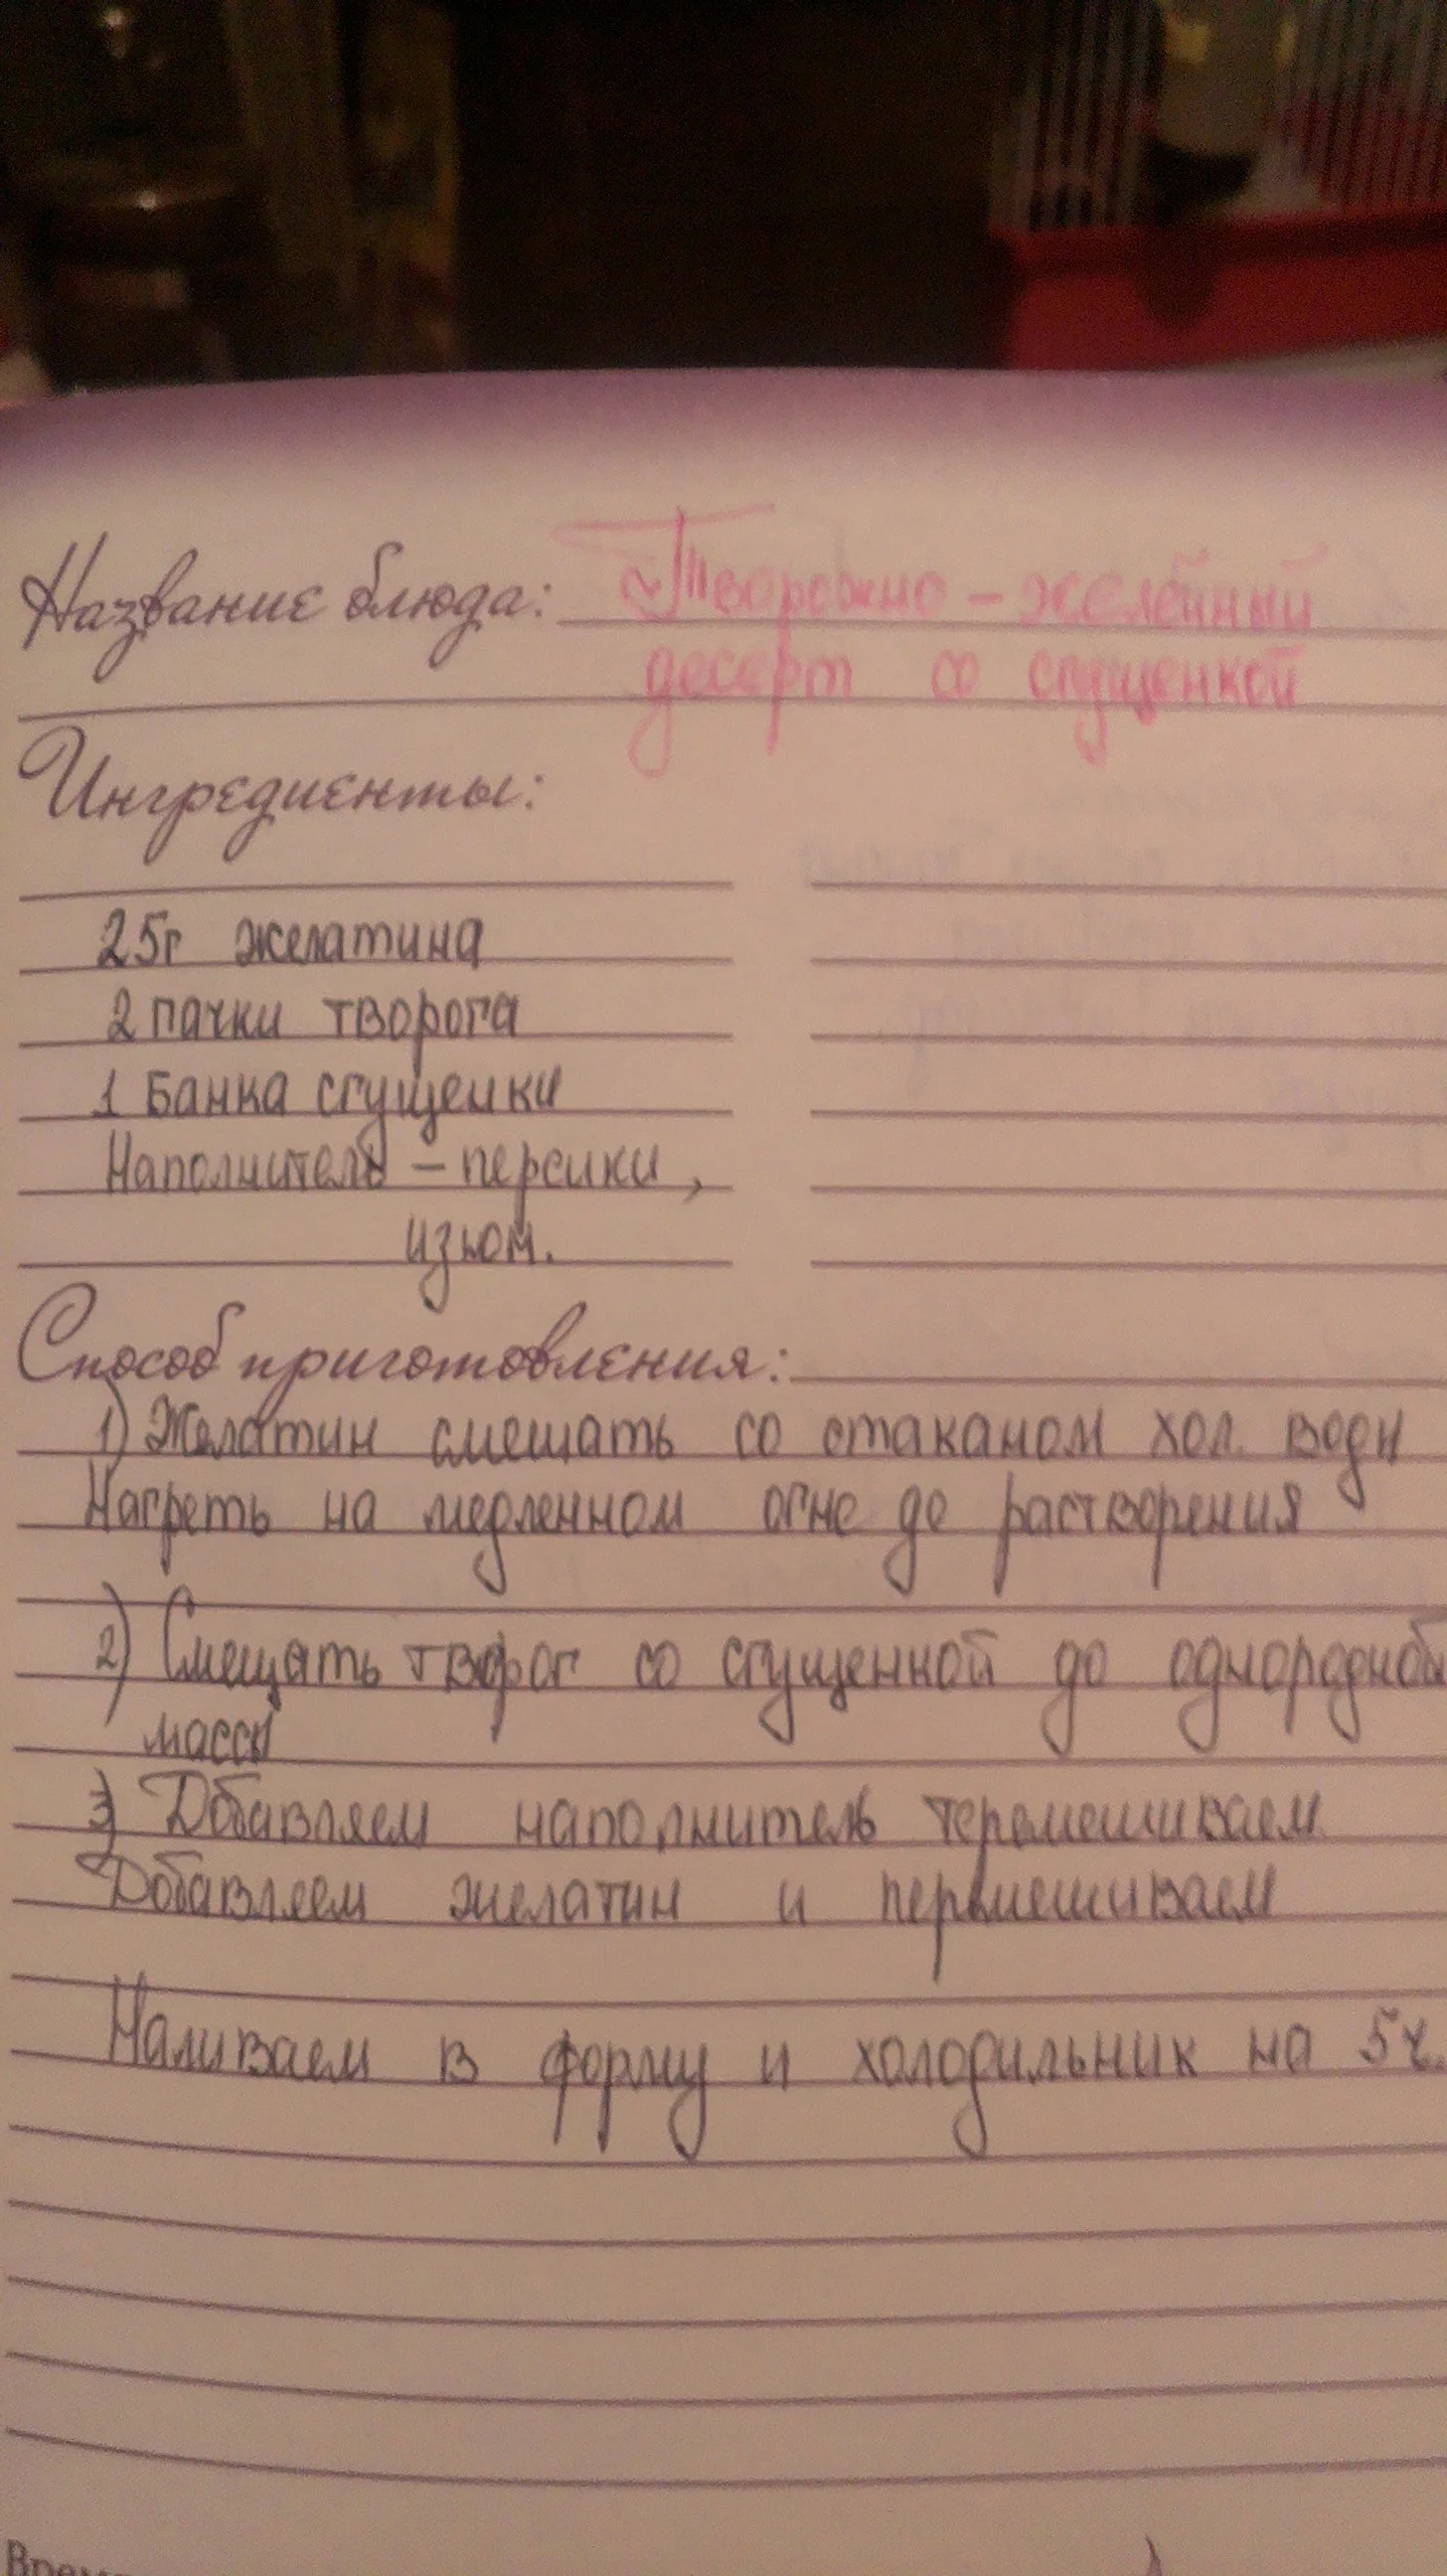 Название блюда: Творожно - желейный
десерт со сгущенкой
Ингредиенты:
25г желатина
2 пачки творога
1 Банка сгущенки
Наполнитель - персики,
изьюм.
Способ приготовления:
1) Желатин смешать со стаканом хол. воды
Нагреть на медленном огне до растворения
2) Смешать творог со сгущенкой до однородной
массы
3) Добавляем наполнитель перемешиваем
Добавляем желатин и перемешиваем
Наливаем в форму и холодильник на 5ч.